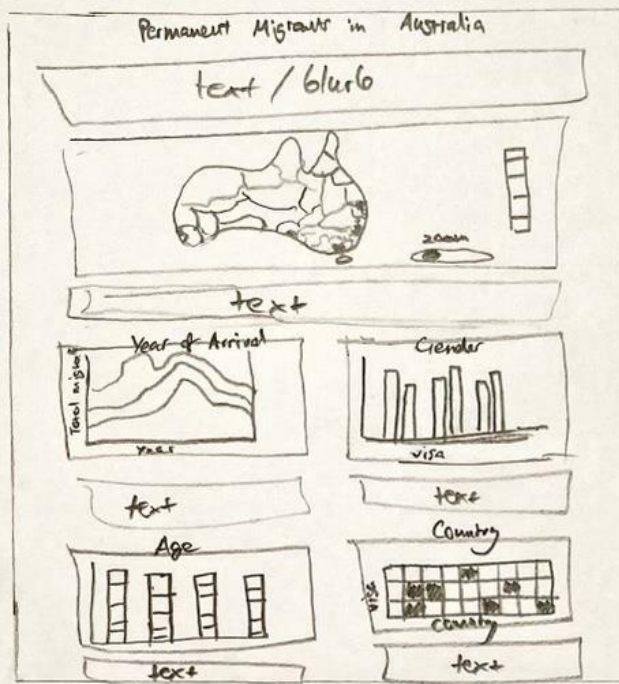 Permanent Migrants in Australia
text / blurb
zoom
text
Year of Arrival
Total migrants
year
Gender
visa
text
text
Age
Country
visa
Country
text
text